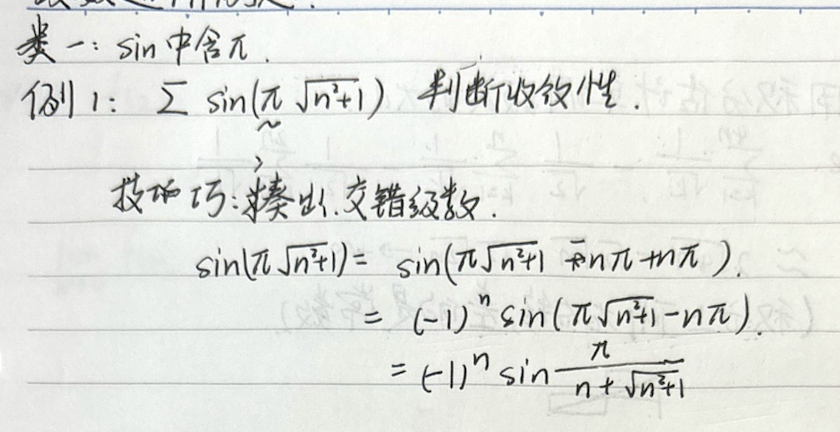 类一: sin中含π.
例1: Σ sin(π√(n²+1)) 判断收敛性.
技巧: 凑出交错级数.
sin(π√(n²+1)) = sin(π√(n²+1) - nπ + nπ).
= (-1)ⁿ sin(π√(n²+1) - nπ).
= (-1)ⁿ sin π/(n+√(n²+1))